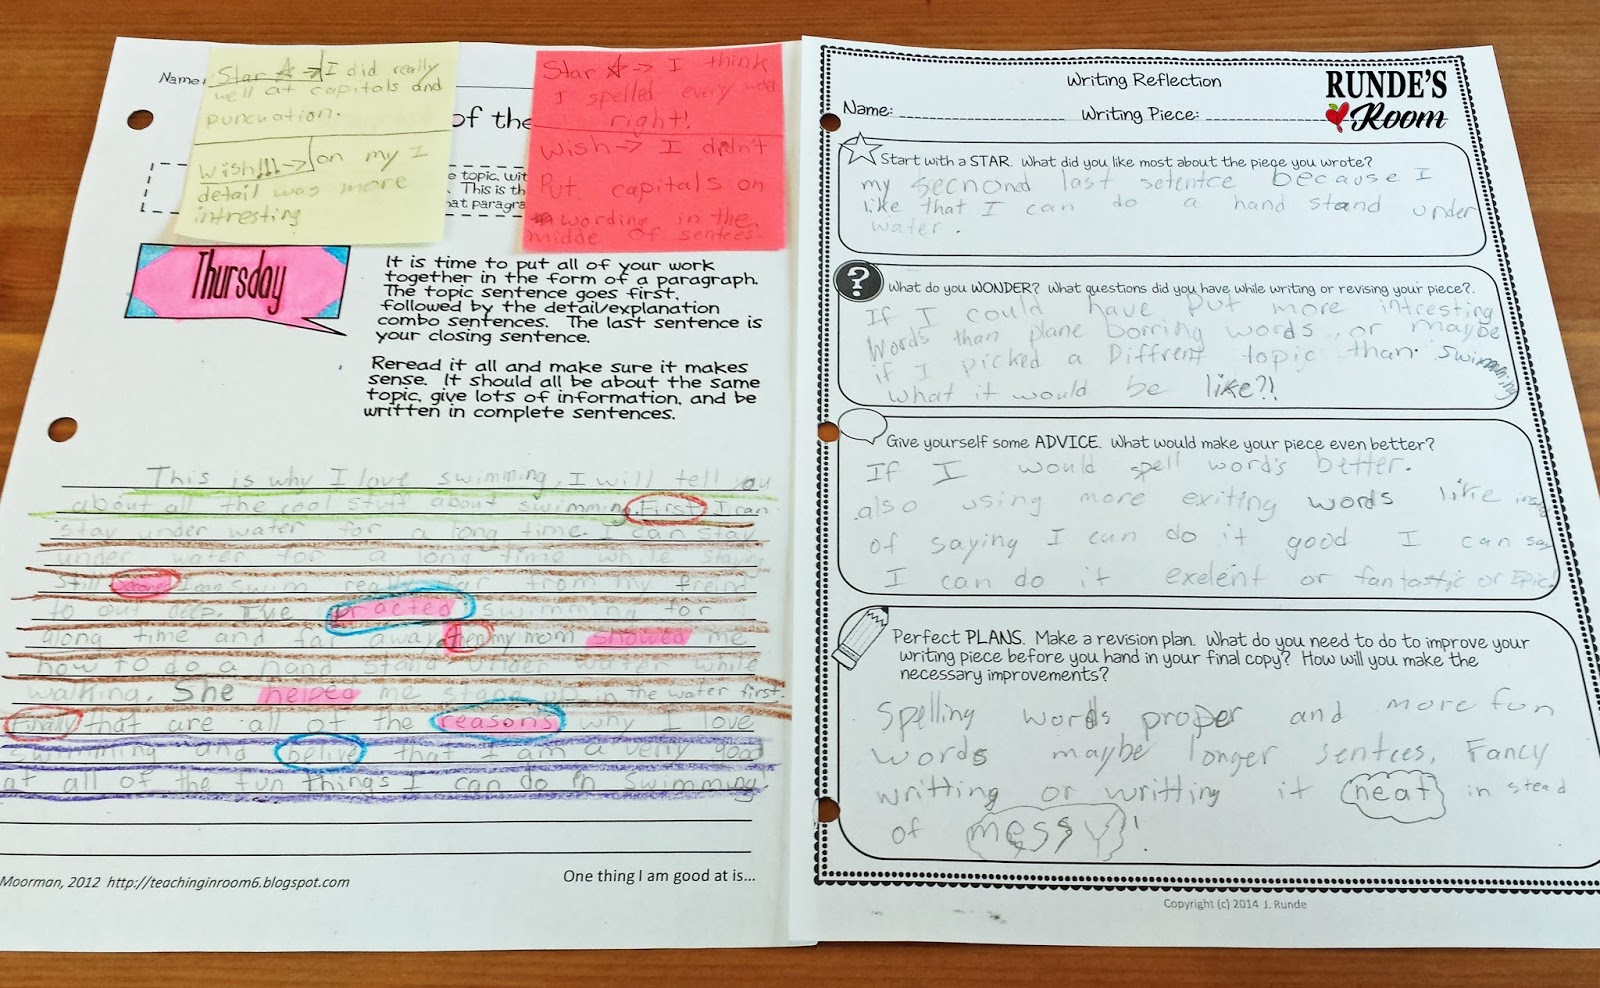 Name:
Star → I did really
well at capitals and
puncuation.
Wish!!! → on my I
detail was more
intresting
Star → I think
I spelled every word
right!
Wish → I didn't
Put capitals on
wording in the
midde of sentees
of the
e topic, wit
. This is th
at paragra
Thursday
It is time to put all of your work
together in the form of a paragraph.
The topic sentence goes first,
followed by the detail/explanation
combo sentences. The last sentence is
your closing sentence.
Reread it all and make sure it makes
sense. It should all be about the same
topic, give lots of information, and be
written in complete sentences.
This is why I love swimming, I will tell you
about all the cool stuff about swimming. First I can
stay under water for a long time. I can stay
under water for a long time while staying
still. I can swim really far from my freind
to out deep. I've practed swimming for
along time and far away. then my mom showed me
how to do a hand stand under water while
walking. She helped me stand up in the water first.
Finally that are all of the reasons why I love
swimming and belive that I am a very good
at all of the fun things I can do in swimming!
Moorman, 2012 http://teachinginroom6.blogspot.com
One thing I am good at is...
Writing Reflection
RUNDE'S
Room
Name: Writing Piece:
Start with a STAR. What did you like most about the piece you wrote?
my secnond last setentce because I
like that I can do a hand stand under
water.
What do you WONDER? What questions did you have while writing or revising your piece?
If I could have put more intresting
words than plane borring words, or maybe
if I picked a Diffrent topic than swimming
what it would be like?!
Give yourself some ADVICE. What would make your piece even better?
If I would spell words better.
also using more exiting words like
of saying I can do it good I can say
I can do it exelent or fantastic or Epic
Perfect PLANS. Make a revision plan. What do you need to do to improve your
writing piece before you hand in your final copy? How will you make the
necessary improvements?
Spelling words proper and more fun
words maybe longer sentces, Fancy
writting or writting it neat in stead
of messy!
Copyright (c) 2014 J. Runde